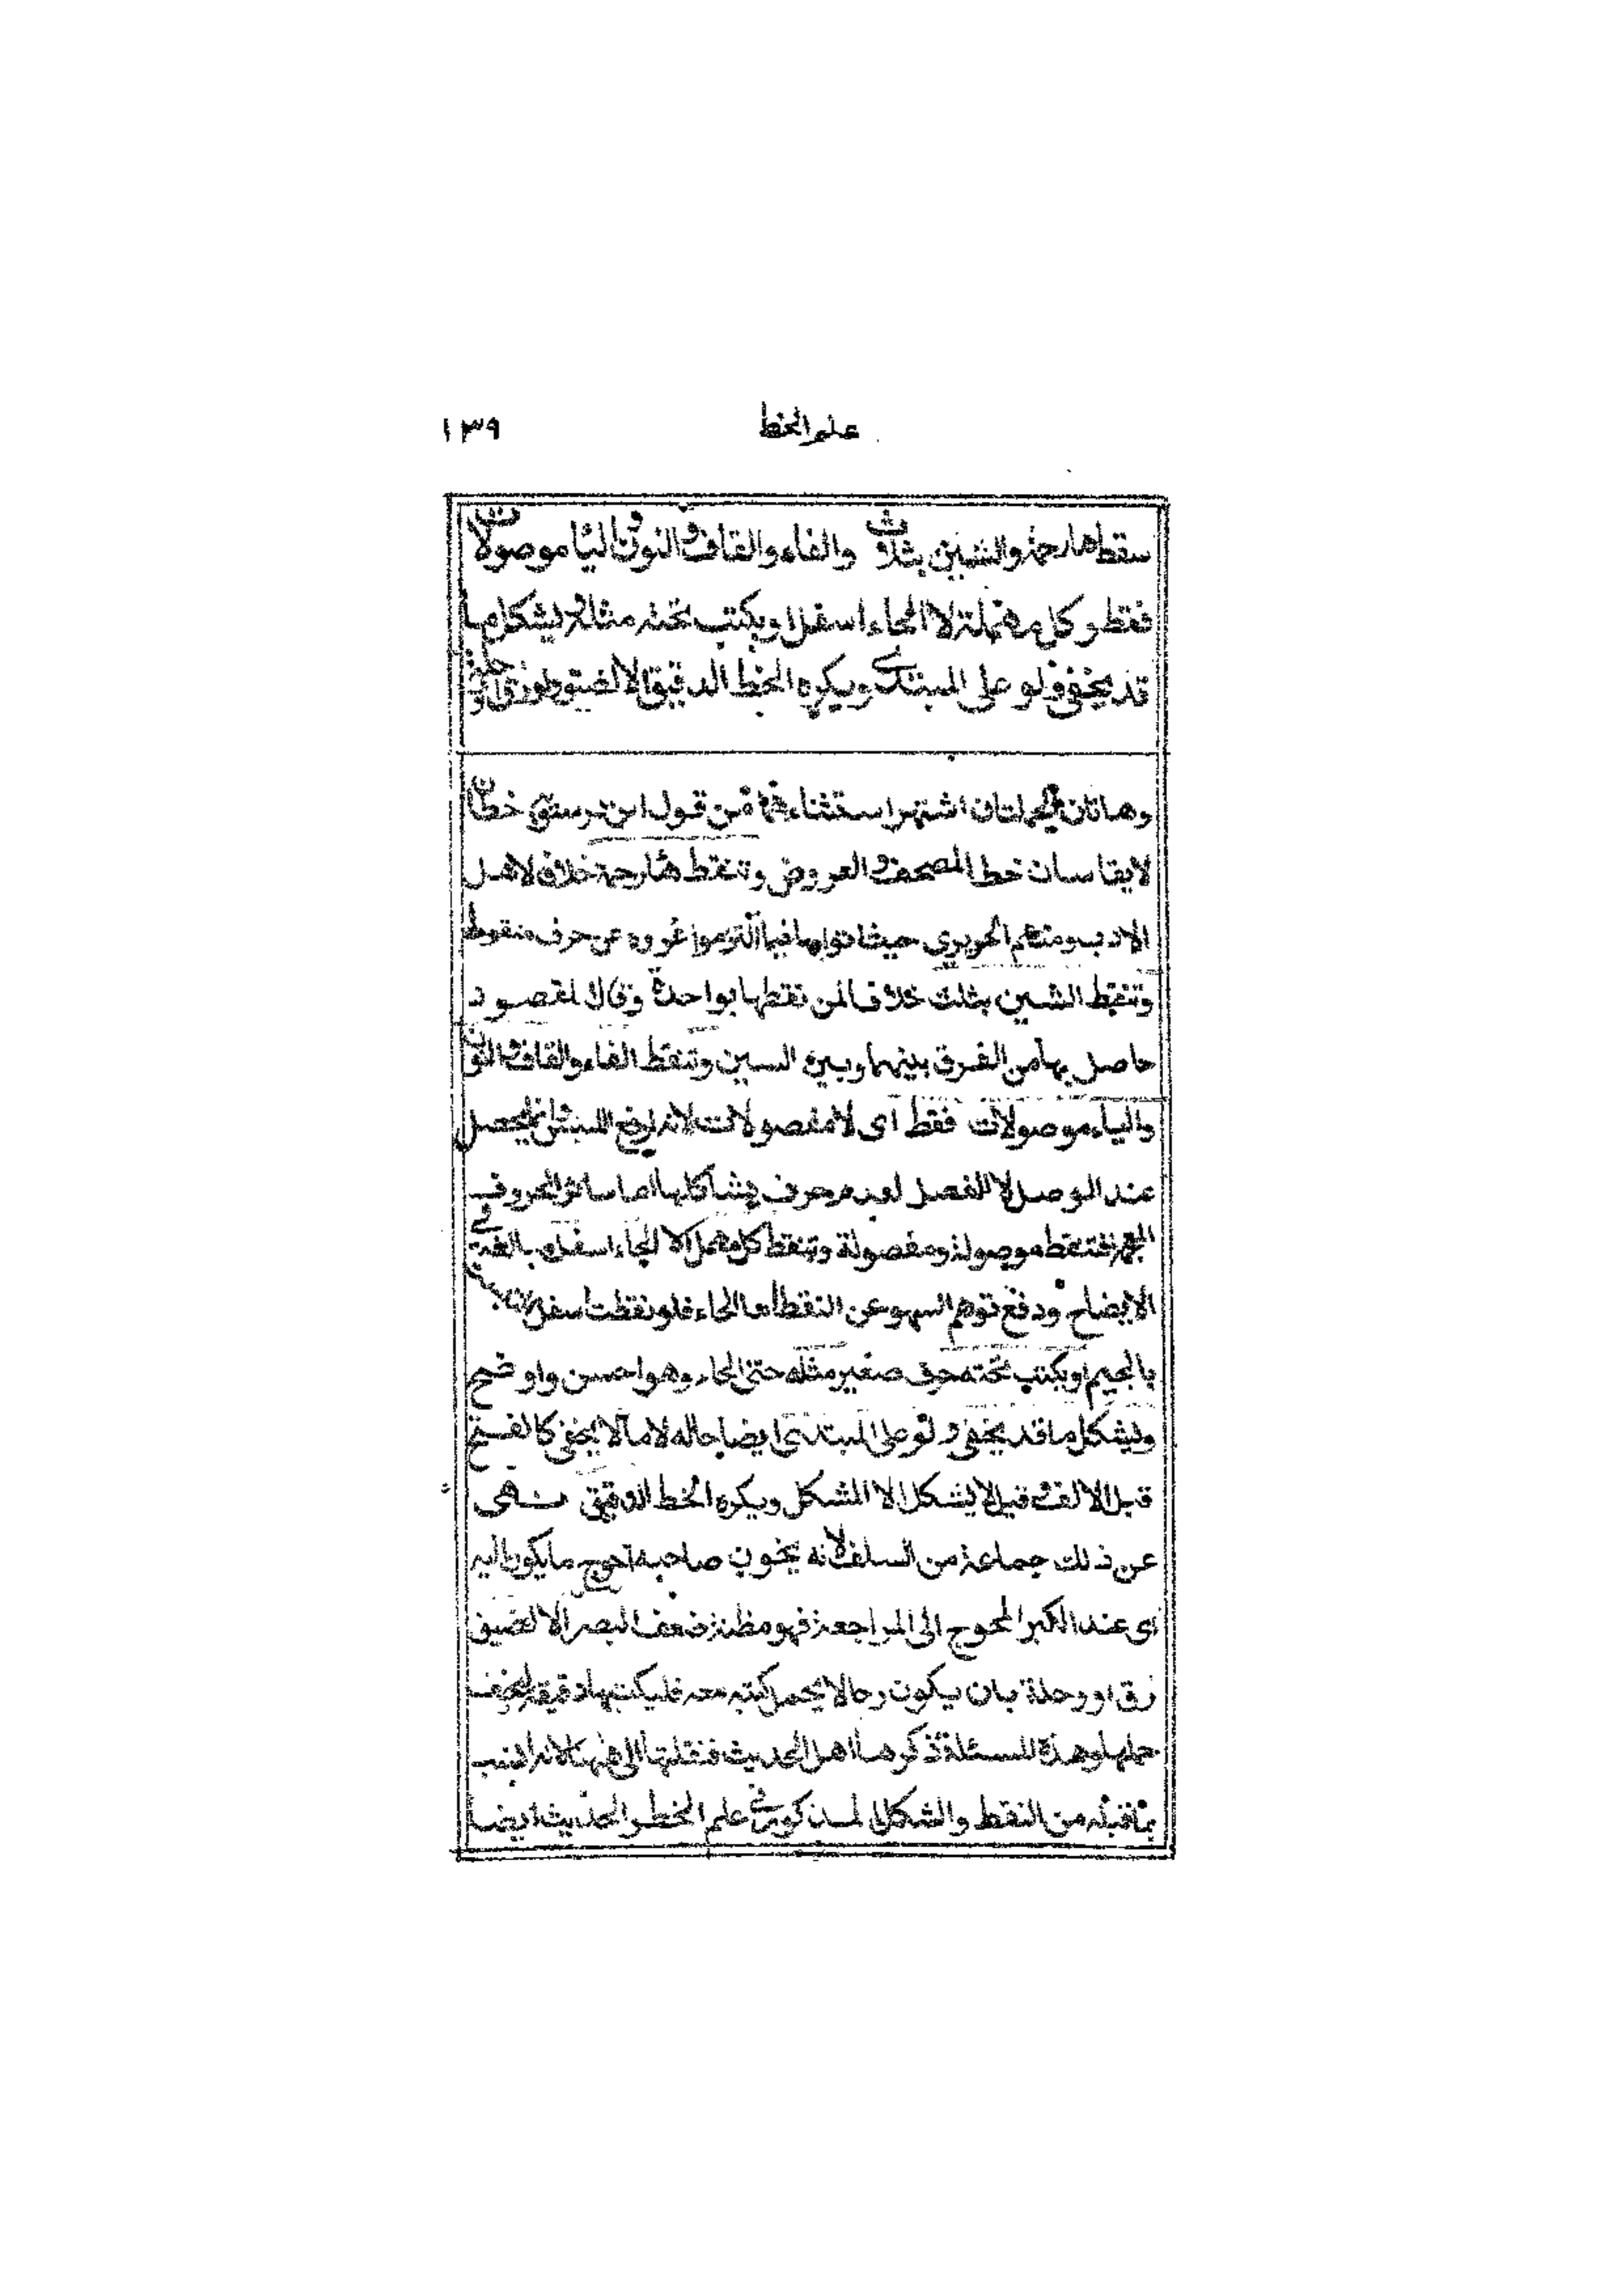 علم الخط ١٣٩
سقط هارحمة والشين بثلاث والفاء والقاف والنون واليا موصولات
فقط وكل مهملة لا الحاء اسفل او يكتب تحته مثاله ويشكل ما
قد يخفى ولو على المبتدى ويكره الخط الدقيق الا لضيق رق او رحلة
وهاتان الجملتان اشتهر استثناءهما من قول ابن درستويه خطان
لا يقاسان خط المصحف والعروض وتنقط هارحمة خلاف لاهل
الادب ومنهم الحريري حيث اتوا بها فيما التزموا عروه عن حرف منقوط
وتنقط الشين بثلث خلافا لمن نقطها بواحدة وقال المقصود
حاصل بها من الفرق بينها وبين السين وتنقط الفاء والقاف والنون
والياء موصولات فقط اى لا مفصولات لانه لرفع اللبس وانما يحصل
عند الوصل لا الفصل لعدم حرف يشاكلها اما سائر الحروف
المعجمة فتنقط موصولة ومفصولة وتنقط كل مهمل الا الحاء اسفل مبالغة في
الايضاح ودفع توهم السهو عن النقط اما الحاء فلو نقطت اسفل لالتبست
بالجيم او يكتب تحته حرف صغير مثله حتى الحاء وهو احسن واوضح
ويشكل ما قد يخفى ولو على المبتدى ايضاحا له لا ما لا يخفى كالفتح
قبل الالف وقيل لا يشكل الا المشكل ويكره الخط الدقيق نهى
عن ذلك جماعة من السلف لانه يخون صاحبه احوج ما يكون اليه
اى عند الكبر المحوج الى المراجعة فهو مظنة ضعف البصر الا لضيق
رق او رحلة بان يكون رحالا يحمل كتبه معه فليكتبها دقيقة ليخف
حملها وهذة المسئلة ذكرها اهل الحديث فنقلتها الى هنا لانه انسب
بما قبله من النقط والشكل المذكور في علم الخط والحديث ايضا